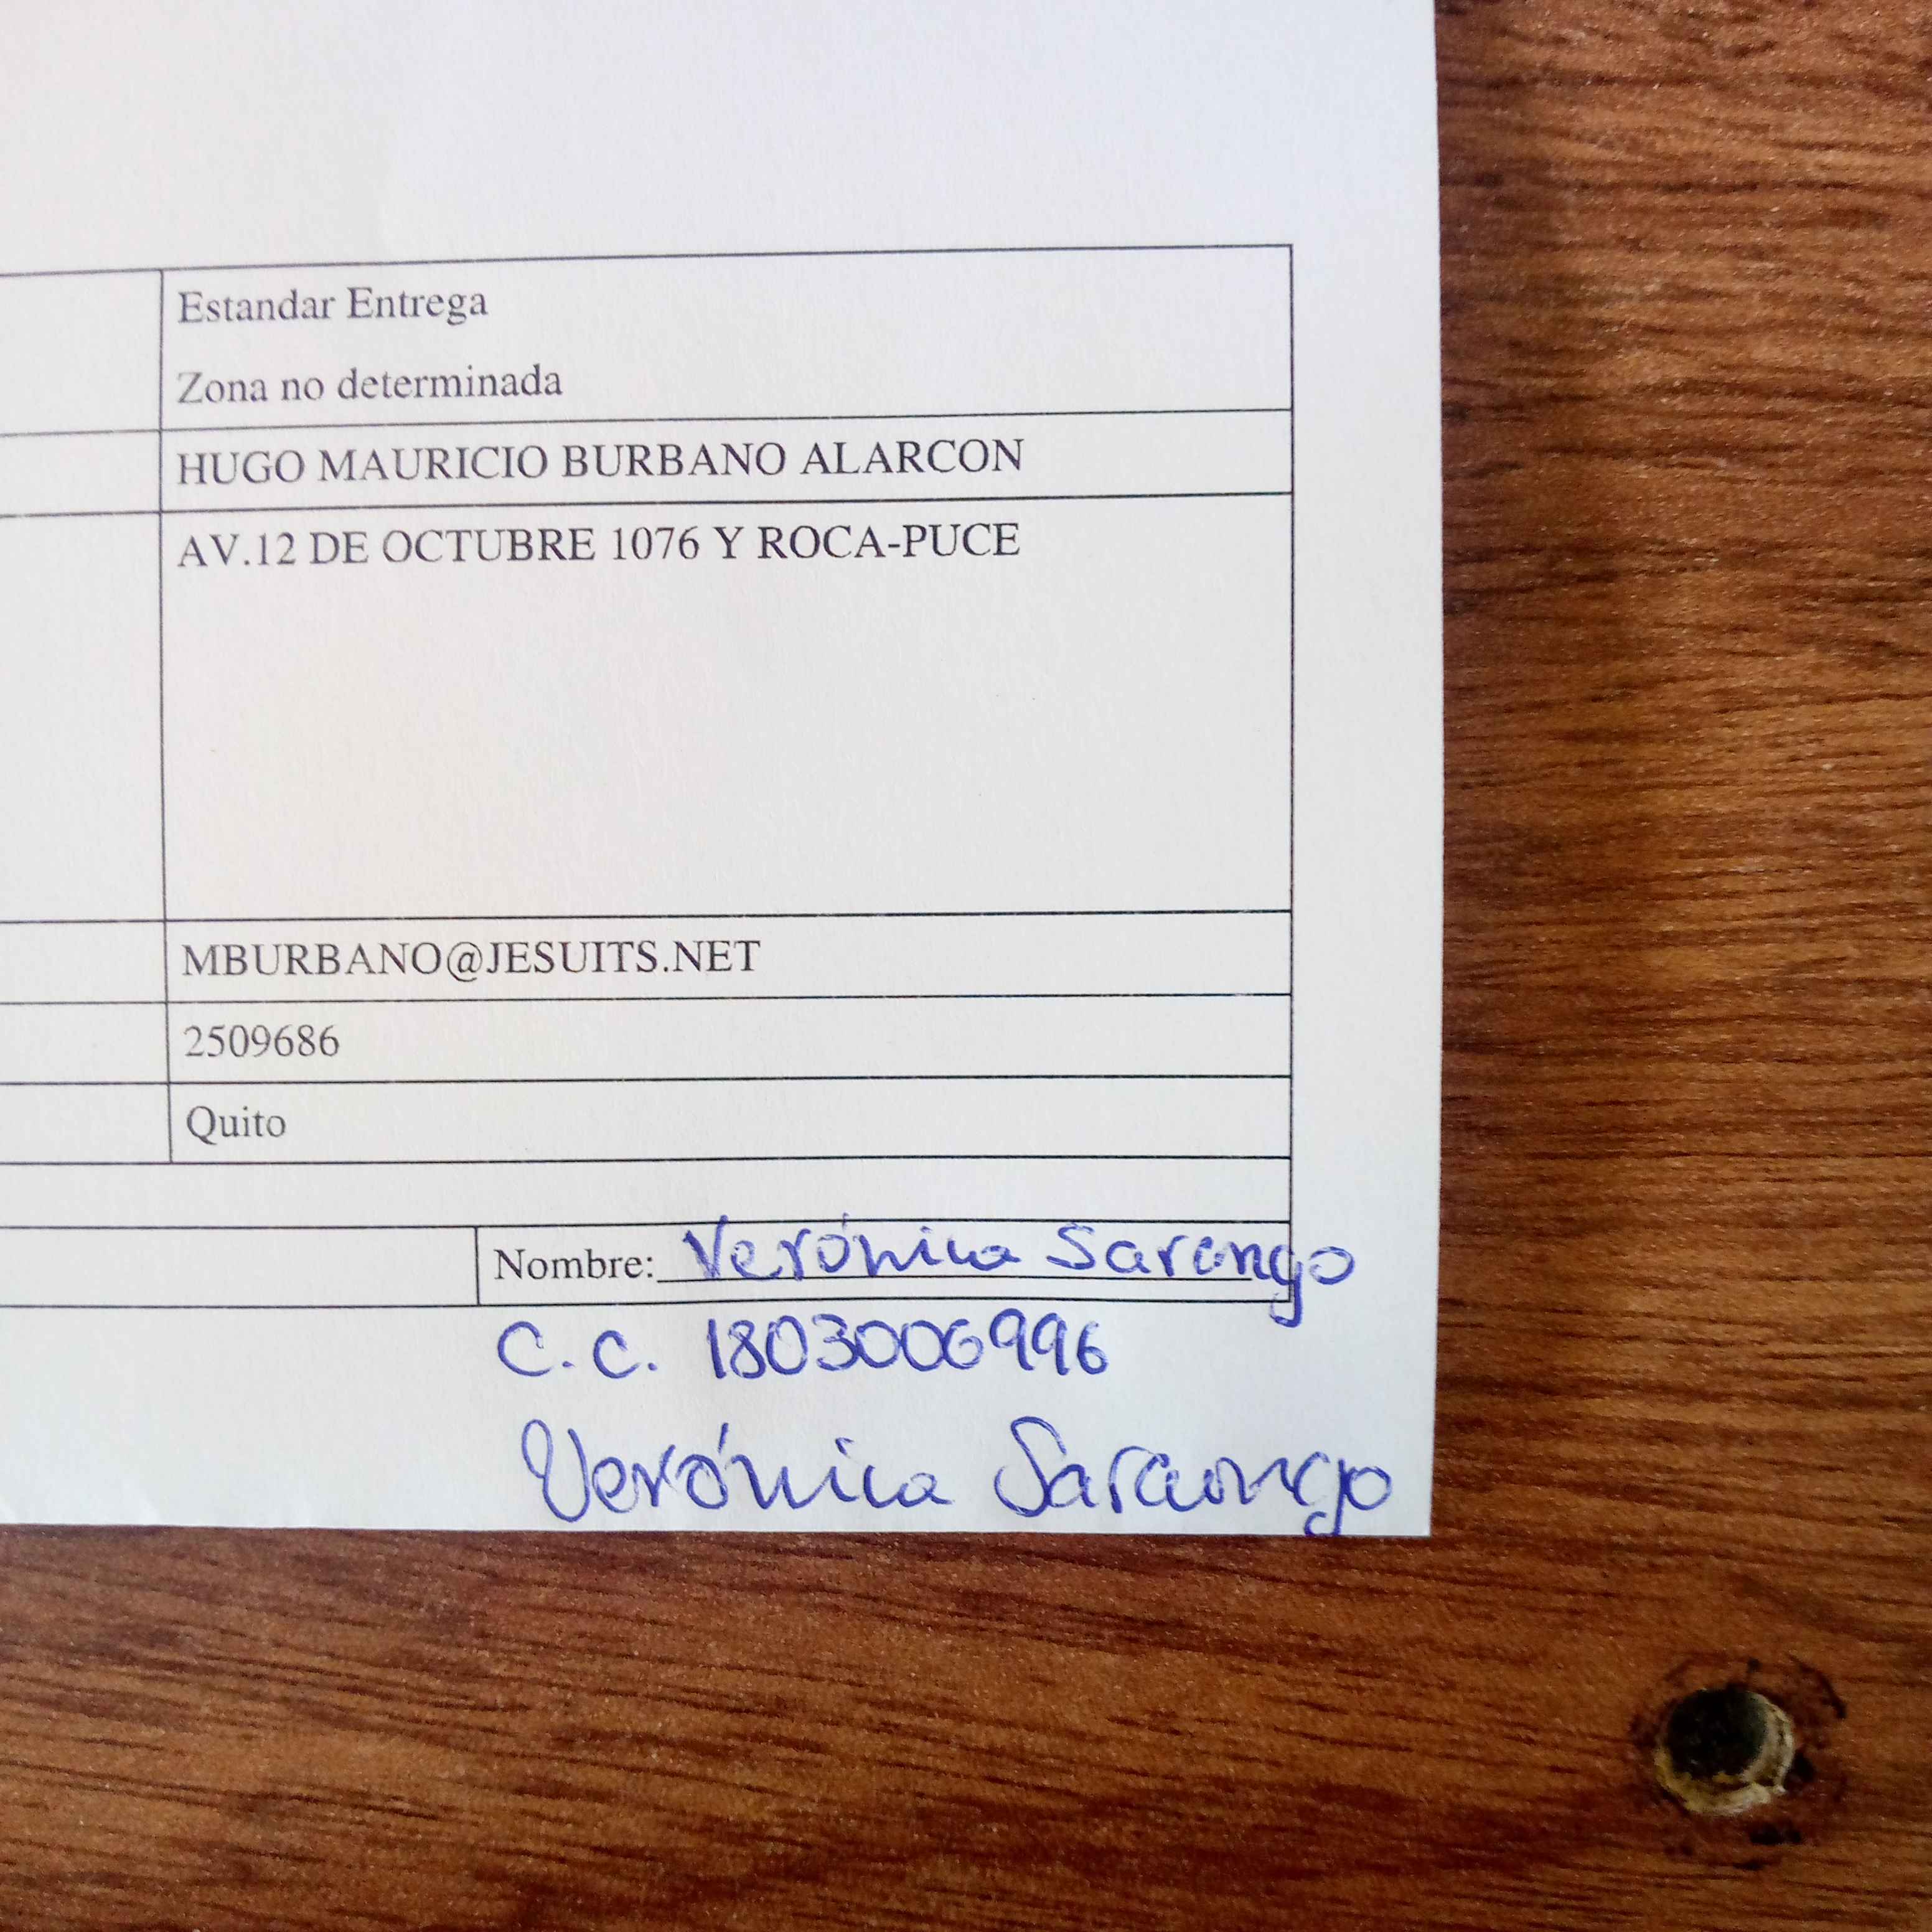 Estandar Entrega
Zona no determinada
HUGO MAURICIO BURBANO ALARCON
AV.12 DE OCTUBRE 1076 Y ROCA-PUCE
MBURBANO@JESUITS.NET
2509686
Quito
Nombre: Verónica Sarango
C.C. 1803006996
Verónica Sarango